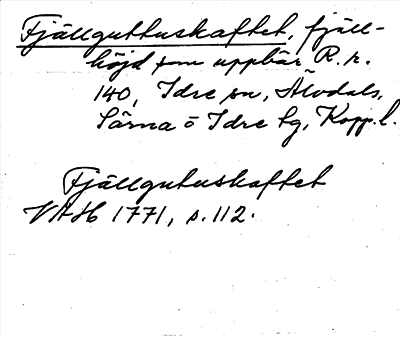 Fjällguttuskaftet, fjäll-
höjd som uppbär R.r.
140, Idre sn, Älvdals,
Särna o Idre tg, Kopp.l.
Fjällgutuskaftet
VAH 1771, s. 112.